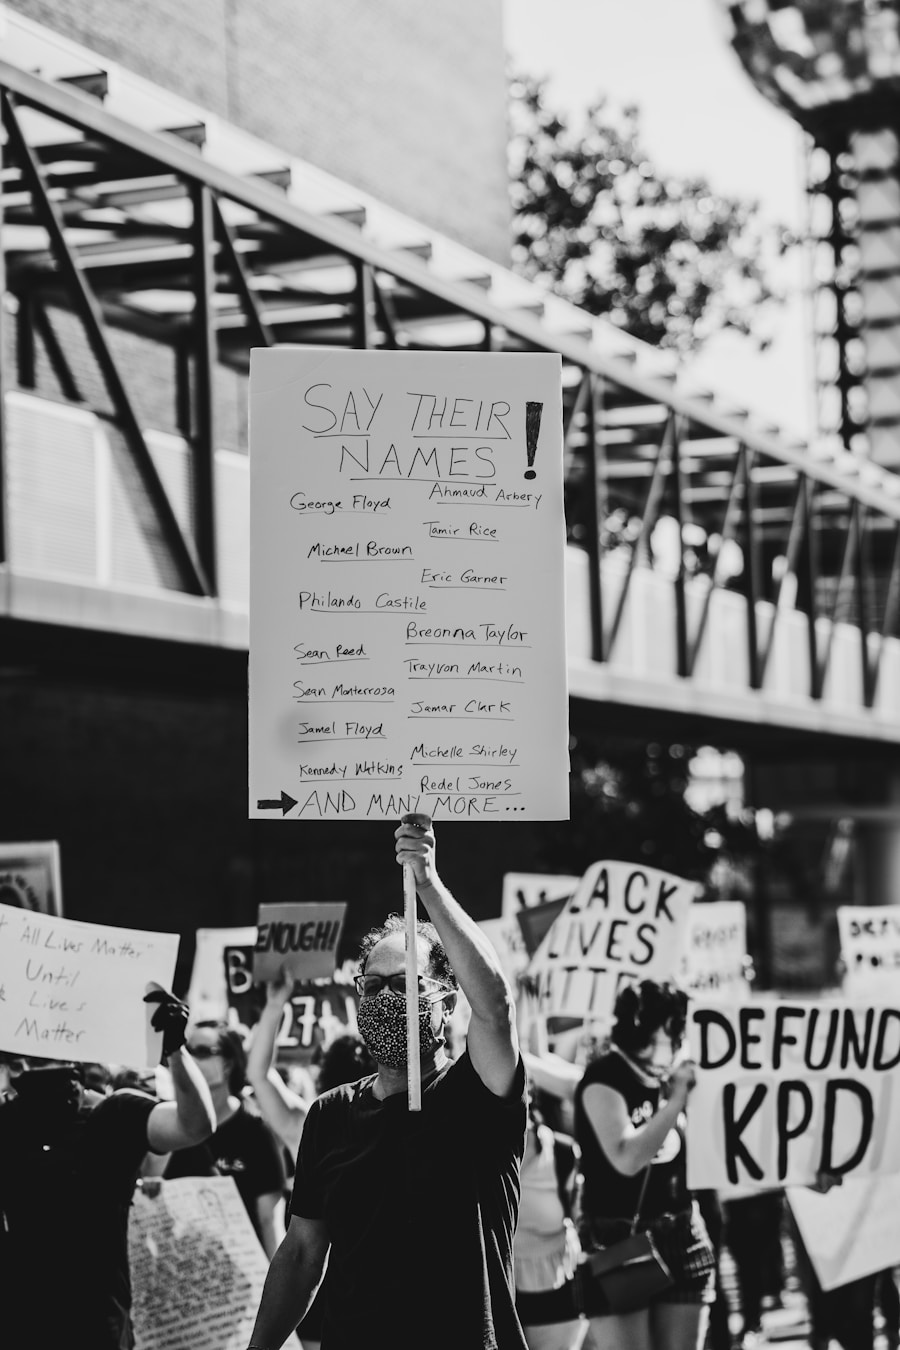 SAY THEIR
NAMES!
George Floyd
Ahmaud Arbery
Tamir Rice
Michael Brown
Eric Garner
Philando Castile
Breonna Taylor
Sean Reed
Trayvon Martin
Sean Monterrosa
Jamar Clark
Jamel Floyd
Michelle Shirley
Kennedy Watkins
Redel Jones
AND MANY MORE...
"All Lives Matter"
Until
Lives
Matter
ENOUGH!
27+
LACK
LIVES
MATTE
DEFUND
KPD